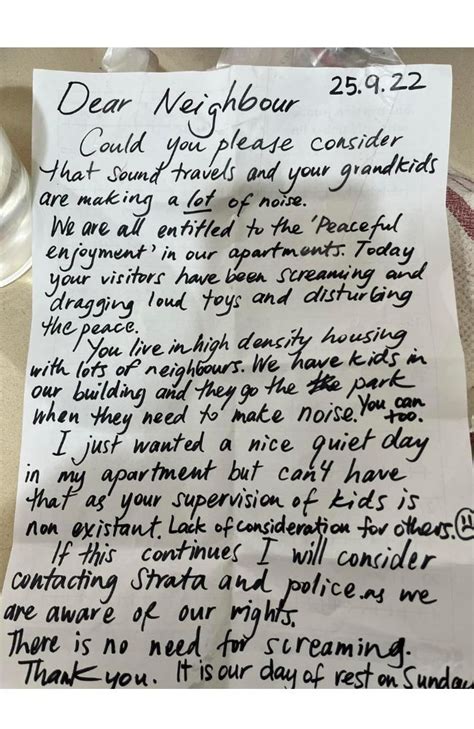 25.9.22
Dear Neighbour
Could you please consider
that sound travels and your grandkids
are making a lot of noise.
We are all entitled to the 'Peaceful
enjoyment' in our apartments. Today
your visitors have been screaming and
dragging loud toys and disturbing
the peace.
You live in high density housing
with lots of neighbours. We have kids in
our building and they go the the park
when they need to make noise. You can
too.
I just wanted a nice quiet day
in my apartment but can't have
that as your supervision of kids is
non existant. Lack of consideration for others.
If this continues I will consider
contacting Strata and police. as we
are aware of our rights.
There is no need for screaming.
Thank you. It is our day of rest on Sunday